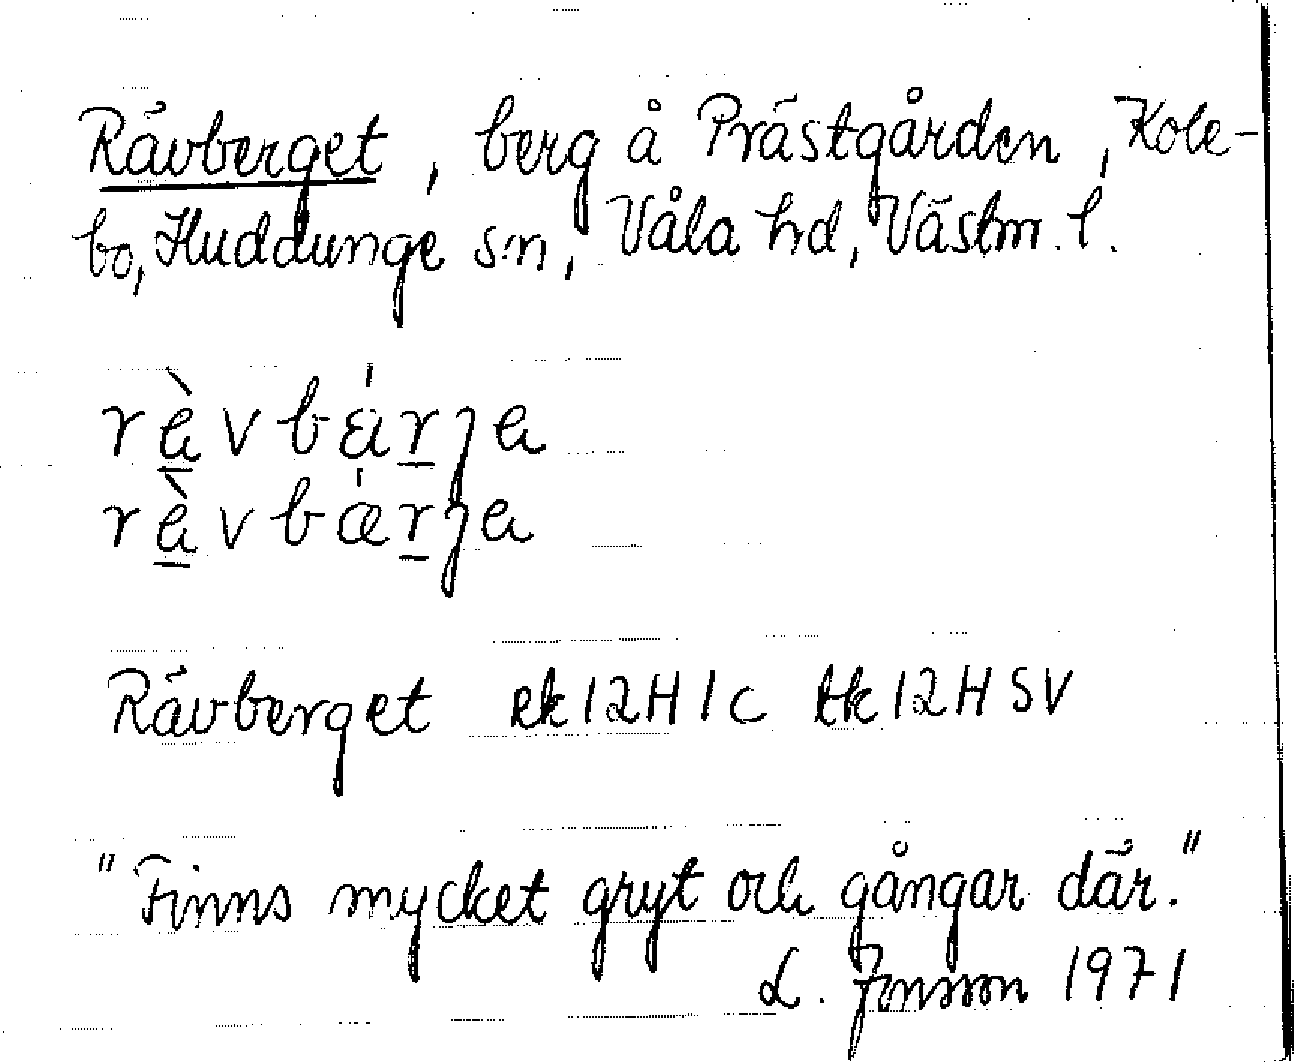 Rävberget, berg å Prästgården, Kole-
bo, Huddunge sn, Våla hd, Västm. l.
rè̱vbárja
rè̱vbǽrja
Rävberget ek 12H 1c tk 12H SV
"Finns mycket gryt och gångar där."
L. Jonsson 1971